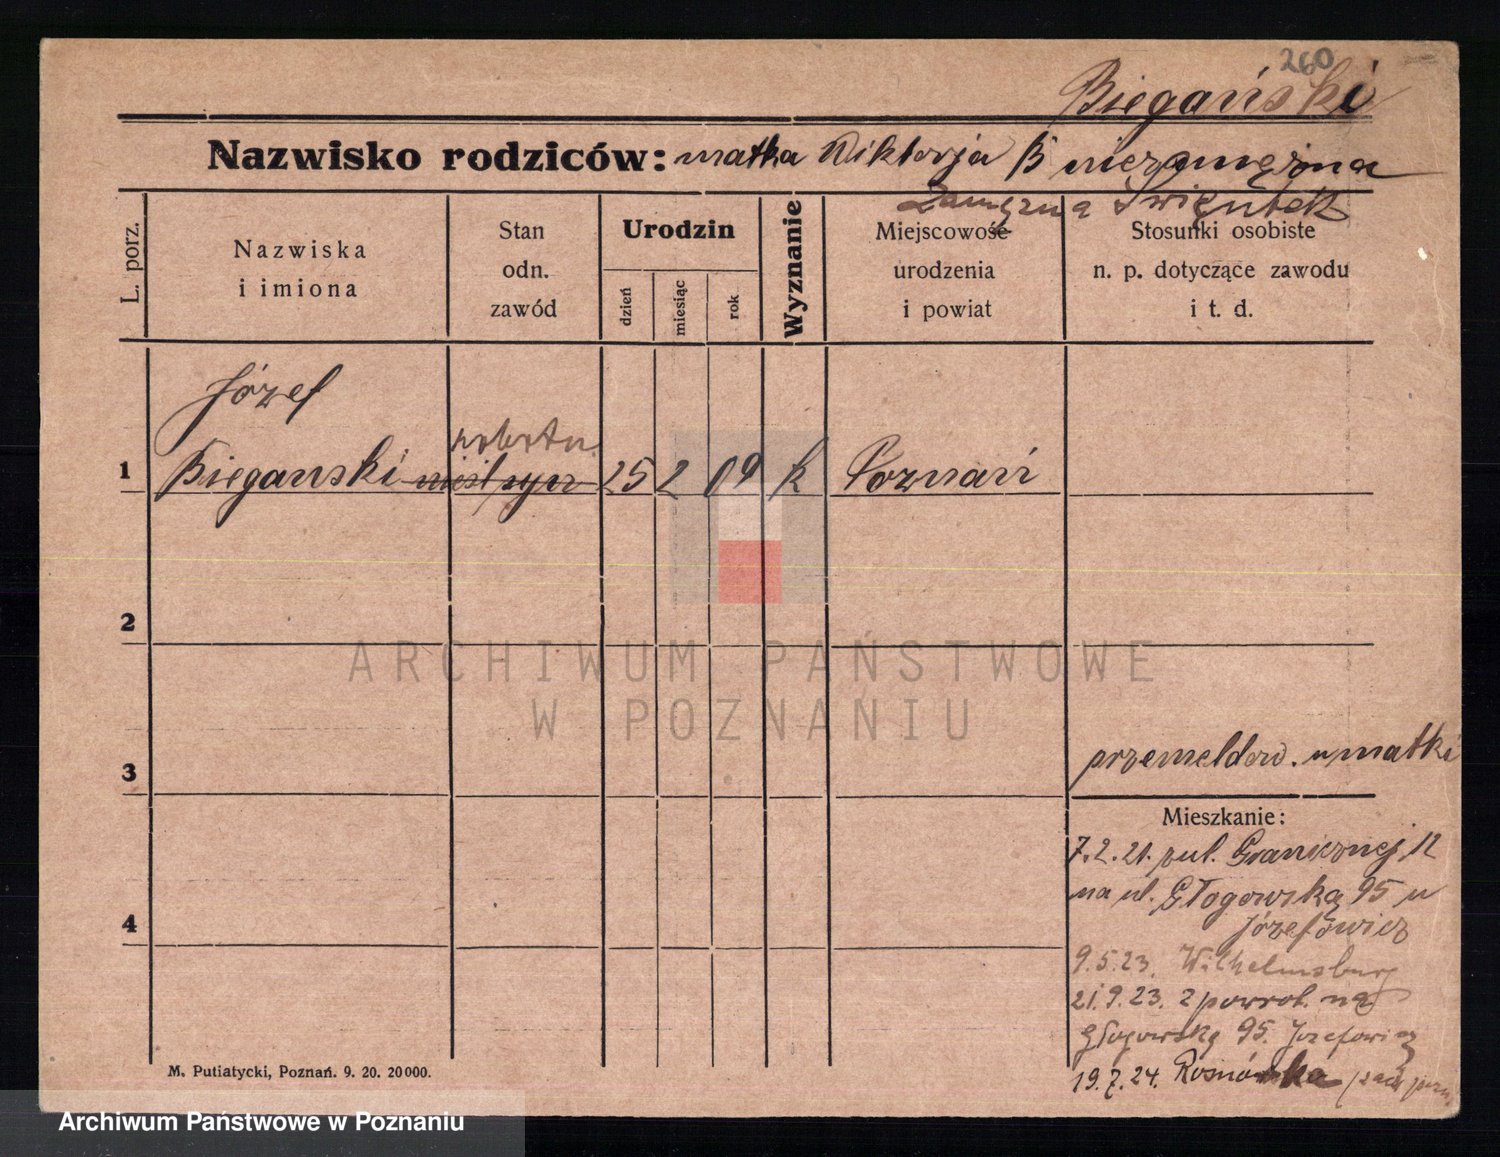 260
Biegański
Nazwisko rodziców: matka Wiktorja B niezamężna
Zamężna Świętek
L. porz.
Nazwiska
i imiona
Stan
odn.
zawód
Urodzin
dzień
miesiąc
rok
Wyznanie
Miejscowość
urodzenia
i powiat
Stosunki osobiste
n. p. dotyczące zawodu
i t. d.
Józef
robotn.
1 Biegański nieśl syn 25 2 09 k Poznań
2
3
przemeldow. u matki
Mieszkanie:
7.2.21. z ul. Granicznej 12
na ul. Głogowską 95 u
Józefowicz
4
9.5.23. Wilhelmsburg
21.9.23. z powrot. na
Głogowską 95. Józefowicz
19.7.24. Rosnówka
M. Putiatycki, Poznań. 9. 20. 20000.
ARCHIWUM PAŃSTWOWE
W POZNANIU
Archiwum Państwowe w Poznaniu